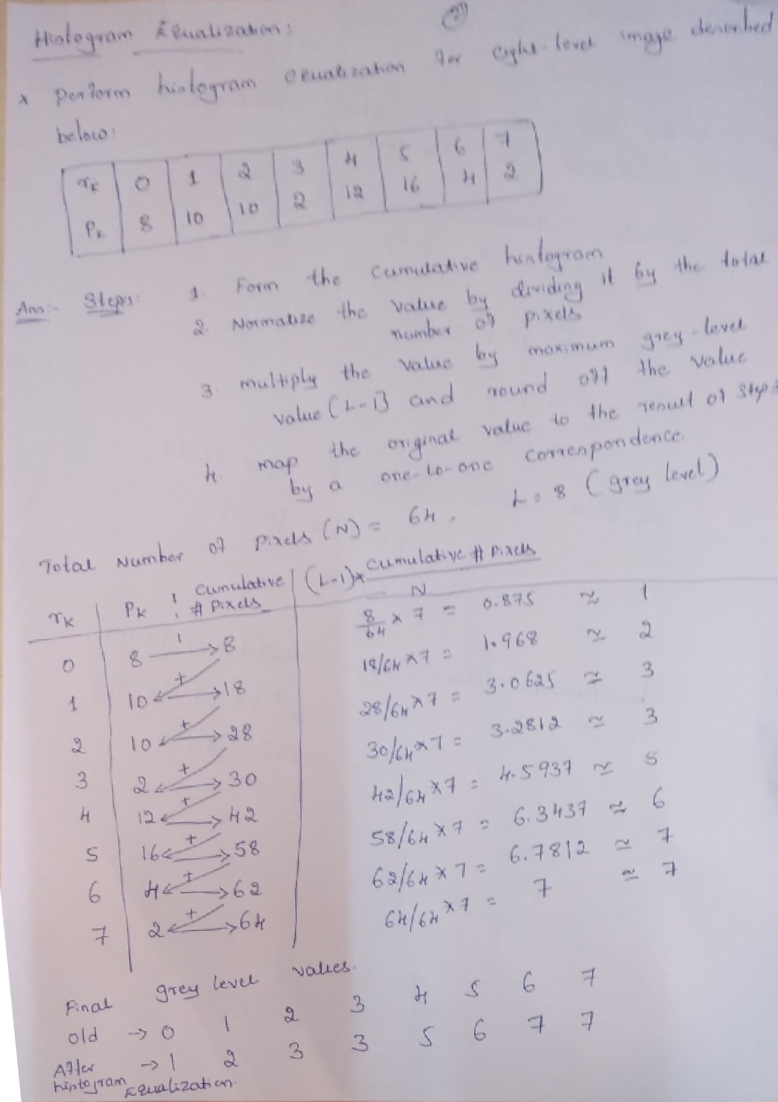 Histogram Equalization:
* Perform histogram equalization for eight-level image described
below:
rk 0 1 2 3 4 5 6 7
Pk 8 10 10 2 12 16 4 2
Ans:- Steps: 1. Form the cumulative histogram
2. Normalize the value by dividing it by the total
number of pixels
3. multiply the value by maximum grey-level
value (L-1) and round off the value
4. map the original value to the result of step 3
by a one-to-one correspondence.
Total Number of pixels (N) = 64, L = 8 (grey level)
rk Pk Cumulative # Pixels (L-1)* Cumulative # Pixels / N
0 8 → 8 8/64 × 7 = 0.875 ≃ 1
1 10 + → 18 18/64 × 7 = 1.968 ≃ 2
2 10 + → 28 28/64 × 7 = 3.0625 ≃ 3
3 2 + → 30 30/64 × 7 = 3.2812 ≃ 3
4 12 + → 42 42/64 × 7 = 4.5937 ≃ 5
5 16 + → 58 58/64 × 7 = 6.3437 ≃ 6
6 4 + → 62 62/64 × 7 = 6.7812 ≃ 7
7 2 + → 64 64/64 × 7 = 7 ≃ 7
Final grey level values.
old → 0 1 2 3 4 5 6 7
After → 1 2 3 3 5 6 7 7
histogram Equalization.